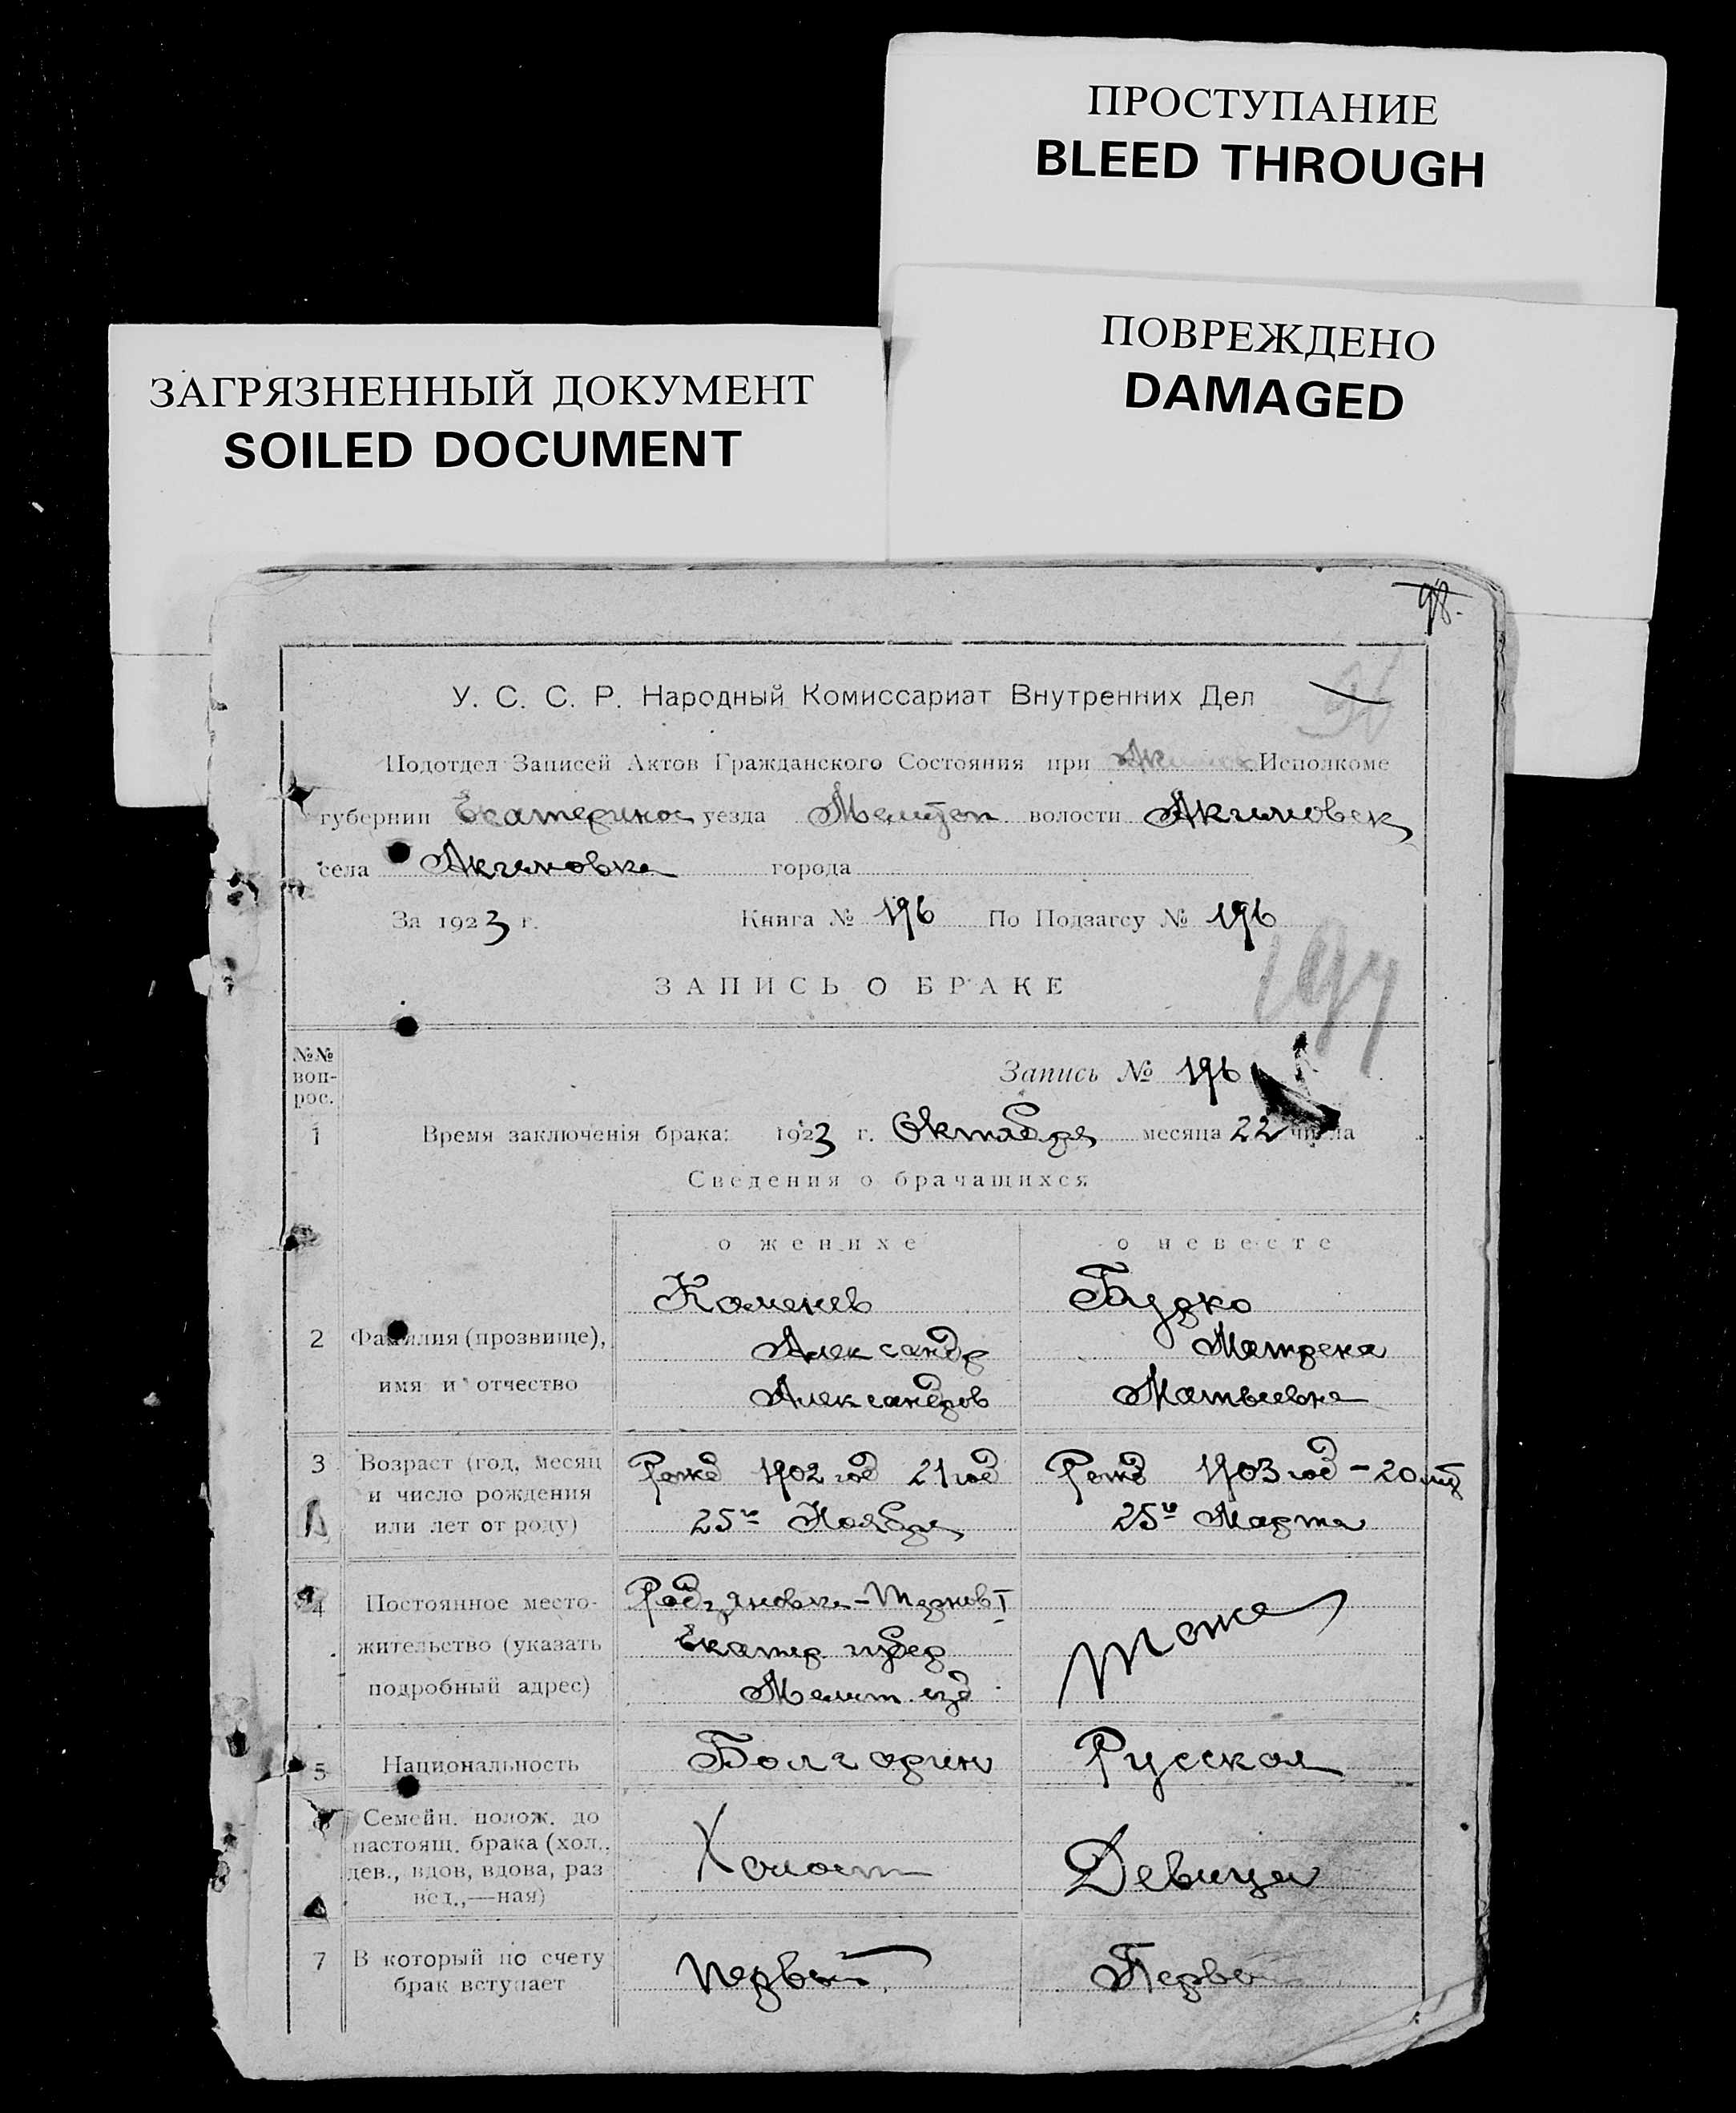 ПРОСТУПАНИЕ
BLEED THROUGH
ПОВРЕЖДЕНО
DAMAGED
ЗАГРЯЗНЕННЫЙ ДОКУМЕНТ
SOILED DOCUMENT
98.
У. С. С. Р. Народный Комиссариат Внутренних Дел
Подотдел Записей Актов Гражданского Состояния при Исполкоме
губернии Екатеринос уезда Мелитоп волости Акимовск
села Акимовка города
За 1923 г. Книга № 196 По Подзагсу № 196
197
ЗАПИСЬ О БРАКЕ
№№ воп- рос.
Запись № 196
1 Время заключенія брака: 1923 г. Октября месяца 22 числа
Сведения о брачащихся
о женихе о невесте
Каменев Гудко
2 Фамилия (прозвище), Александр Матрена
имя и отчество Александров Матвеевна
3 Возраст (год, месяц Рожд 1902 год 21 год Рожд 1903 год - 20 лет
и число рождения 25го Ноября 25го Марта
или лет от роду)
4 Постоянное место-
жительство (указать Екатер губер тоже
подробный адрес) Мелит. уезд
5 Национальность Болгарин Русская
6 Семейн. полож. до
настоящ. брака (хол., Холост Девица
дев., вдов, вдова, раз
вед.,—ная)
7 В который по счету Первый Первый
брак вступает